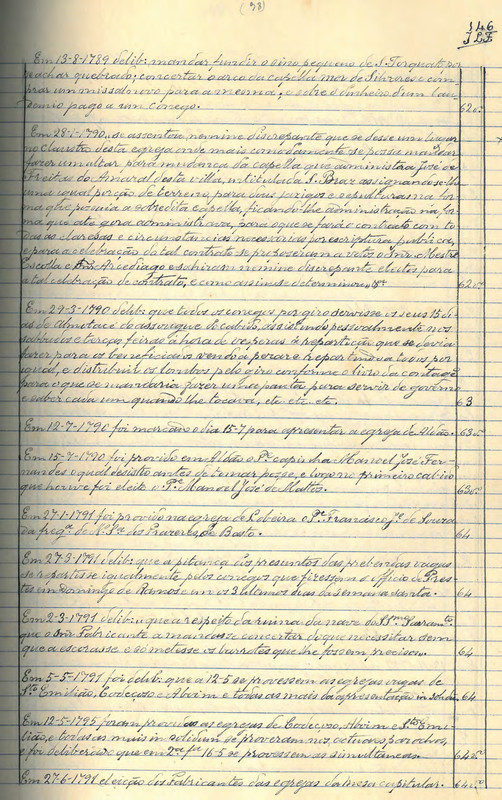 (78)
146
Em 13-8-1789 delib: mandar fundir o sino pequeno de S. Torquato por
se achar quebrado; concertar o arco da capella mor de Silvares e com-
prar um missal novo para a mesma; e sobre o dinheiro d'um lau-
demio pago a um conego. 62 vº
Em 28-1-1790, se assentou nemine discrepante que se desse um lugar
no claustro desta egreja onde mais commodamente se possa mandar
fazer um altar para mudança da capella que administra José de
Freitas do Amaral desta villa, intitulada S. Braz assignando-se-lhe
uma igual porção de terreno, para dous jazigos e sepulturas na for-
ma q. lhe possuia a sobredita capella, ficando-lhe administração na for-
ma que até gora administrava, para o que se fará o contrato com to-
das as clarezas e circunstancias necessarias por escriptura publica,
e para a celebração do tal contrato se proposeram a votos o Snr. Mestre
Escolla e Snr. Arcediago e sahiram nemine discrepante eleitos para
a tal celebração de contrato, e como assim se determinou, &ª 62 vº
Em 29-3-1790 delib: que todos os conegos por giro servissem os seus 15 di-
as de Almotacé do assougue do cabido, assistindo pessoalmente nos
sabbados e terças feiras á hora de vesperas á repartição que se devia
fazer para os beneficiados vendo o pezar e repartindo a todos por
igual, e distribuir os lombos pelo giro conforme o livro da contage
para o que se mandaria fazer uma pauta para servir de governo
e saber cada um quando lhe tocava, etc. etc. etc. 63
Em 12-7-1790 foi marcado o dia 15-7 para apresentar a egreja de Aldão. 63 vº
Em 15-7-1790 foi provido em Aldão o Pe. capinha Manoel José Fer-
nandes o qual desistio antes de tomar posse, e logo no primeiro cabido
que houve foi eleito o Pe. Manoel José de Mattos. 63 vº
Em 27-1-1791 foi provido na egreja de Ribeira o Pe. Francisco Je. de Souza
da fregª. de N. Sª. dos Prazeres, de Basto. 64
Em 27-3-1791 delib: que a pitança dos presuntos das prebendas vagas
se repartisse igualmente pelos conegos que fizessem o officio de Pres-
tes em Domingo de Ramos e nos 3 ultimos dias da semana santa. 64
Em 2-3-1791 delib: que a respeito da ruina da nave do SSmo. Sacramto.
que o Snr. Fabricante a mandasse concertar do que necessitar sem
que a escorasse e so metesse os barrotes que lhe fossem precisos. 64
Em 5-5-1791 foi delib: que a 12-5 se provessem as egrejas vagas de
Sto. Emilião, Codeçoso e Abrim e todas as mais da apresentação in solidum. 64
Em 12-5-1795 foram providas as egrejas de Codeçoso, Abrim e Sto. Emi-
lião, e todas as mais in solidum se proveram nos actuaes parochos,
e foi deliberado que em 2ª. fª. 16-5 se provessem as simultaneas. 64 vº
Em 27-6-1791 eleição dos Fabricantes das egrejas da mesa capitular. 64 vº